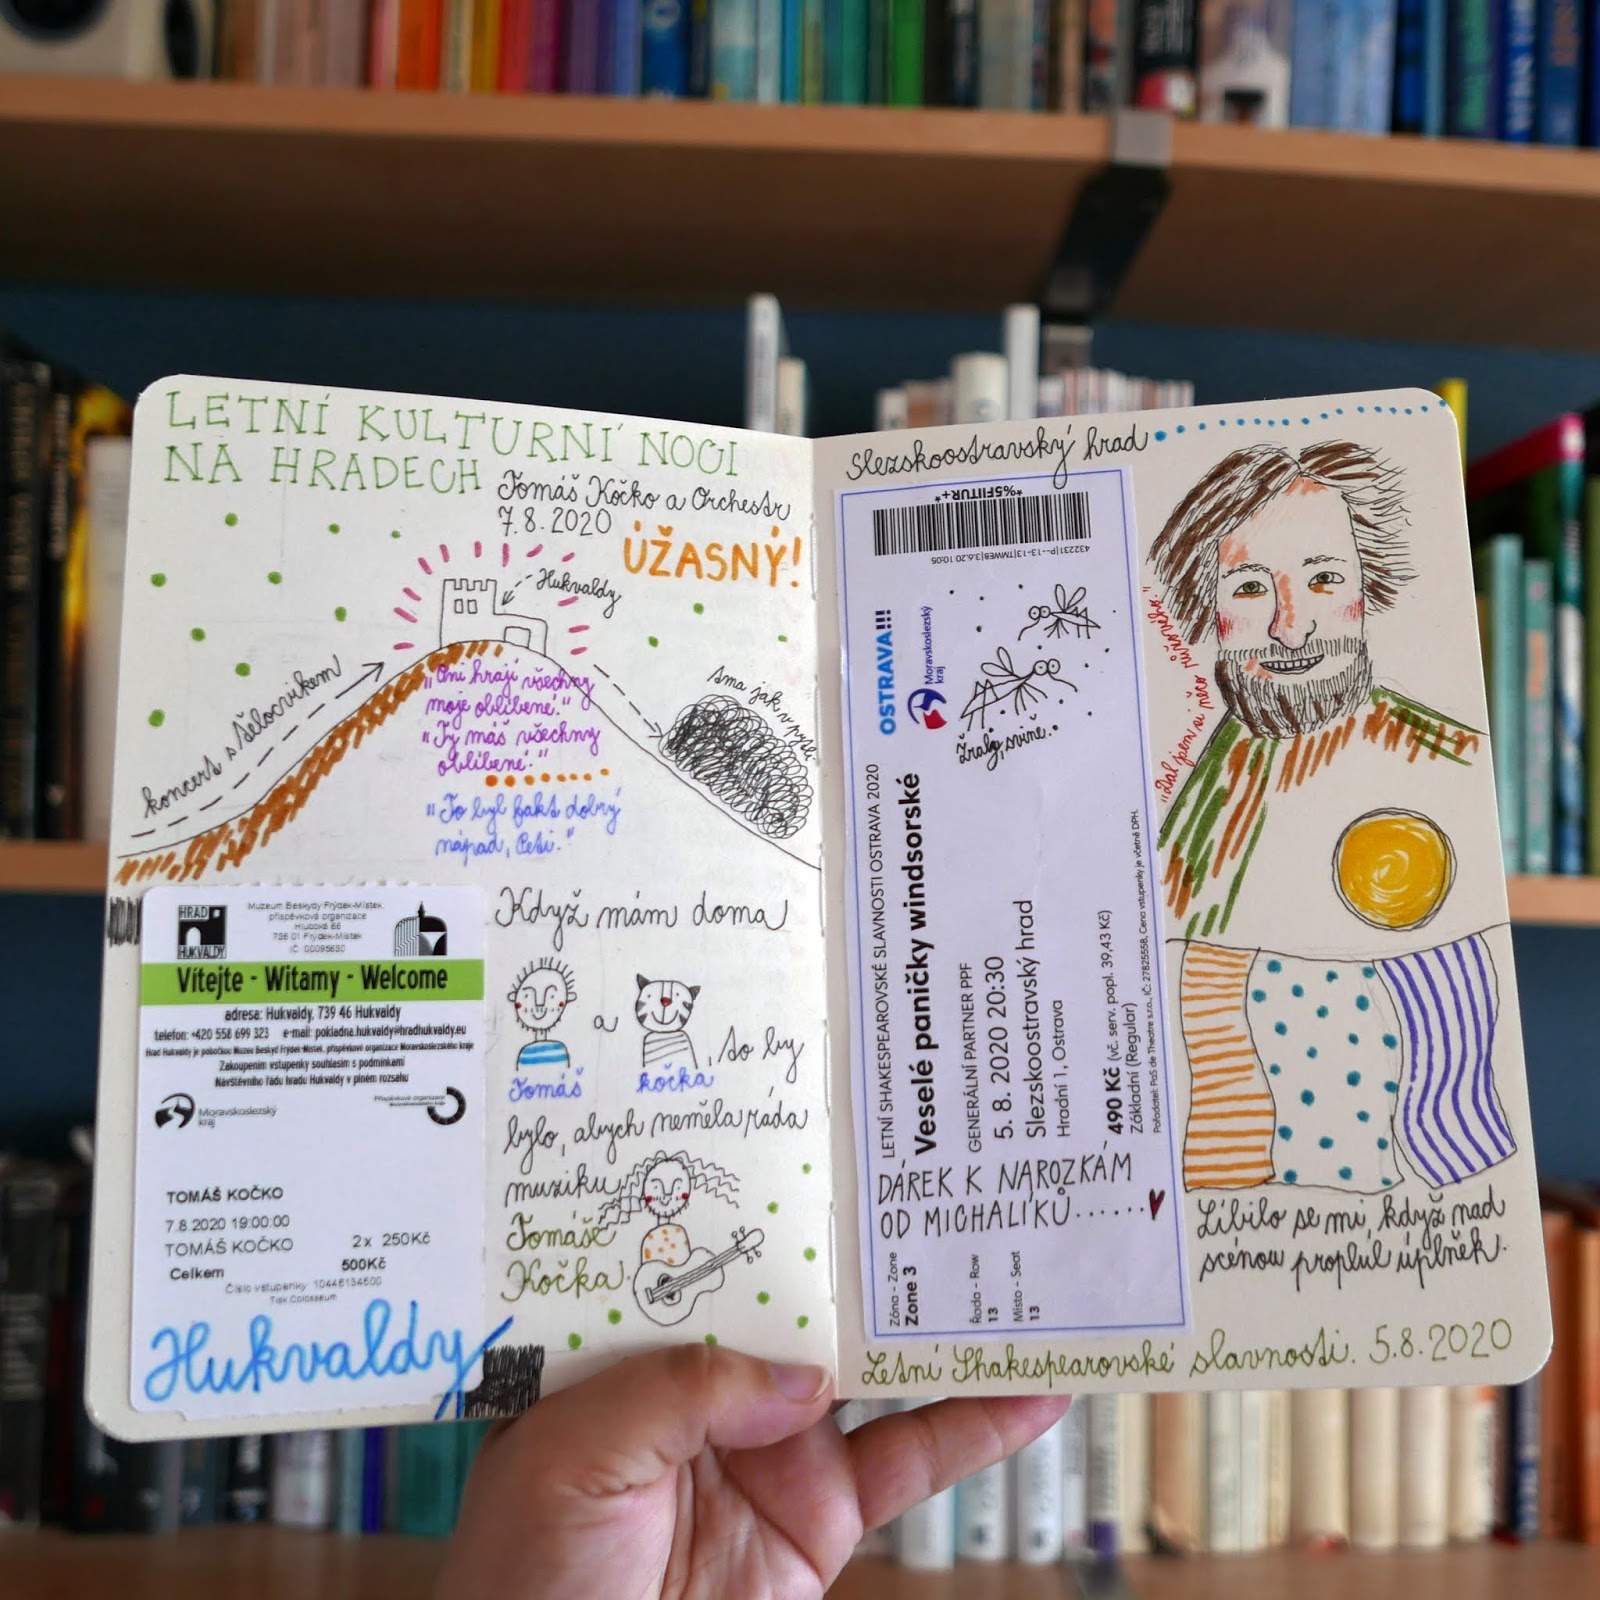 LETNÍ KULTURNÍ NOCI
NA HRADECH
Tomáš Kočko a Orchestr
7.8.2020
ÚŽASNÝ!
Hukvaldy
koncert s tělocvikem
tma jak v pytli
"Oni hrají všechny
moje oblíbené."
"Ty máš všechny
oblíbené."
"To byl fakt dobrý
nápad, Peti."
HRAD
HUKVALDY
Muzeum Beskyd Frýdek-Místek,
příspěvková organizace
Hluboká 66
738 01 Frýdek-Místek
IČ: 00095630
Vítejte - Witamy - Welcome
adresa: Hukvaldy, 739 46 Hukvaldy
telefon: +420 558 699 323 e-mail: pokladna.hukvaldy@hradhukvaldy.eu
Hrad Hukvaldy je pobočkou Muzea Beskyd Frýdek-Místek, příspěvkové organizace Moravskoslezského kraje
Zakoupením vstupenky souhlasím s podmínkami
Návštěvního řádu hradu Hukvaldy v plném rozsahu
Moravskoslezský
kraj
Příspěvková organizace
Moravskoslezského kraje
TOMÁŠ KOČKO
7.8.2020 19:00:00
TOMÁŠ KOČKO 2x 250Kč
Celkem 500Kč
Číslo vstupenky: 10446134600
Tisk Colosseum
Hukvaldy
Když mám doma
a , to by
Tomáš kočka
bylo, abych neměla ráda
muziku
Tomáše
Kočka.
Slezskoostravský hrad
*%5FITUR+*
432231|P--13-13|TMWEB|3.6.20 10:05
OSTRAVA!!!
Moravskoslezský
kraj
Žraly, svině.
LETNÍ SHAKESPEAROVSKÉ SLAVNOSTI OSTRAVA 2020
Veselé paničky windsorské
GENERÁLNÍ PARTNER PPF
5. 8. 2020 20:30
Slezskoostravský hrad
Hradní 1, Ostrava
490 Kč (vč. serv. popl. 39,43 Kč)
Základní (Regular)
Pořadatel: PaS de Theatre s.r.o., IČ: 27825558, Cena vstupenky je včetně DPH.
DÁREK K NAROZKÁM
OD MICHALÍKŮ......
Zóna - Zone
Zone 3
Řada - Row
13
Místo - Seat
13
"Dal jsem si něco růžového."
Líbilo se mi, když nad
scénou proplul úplněk.
Letní Shakespearovské slavnosti. 5.8.2020